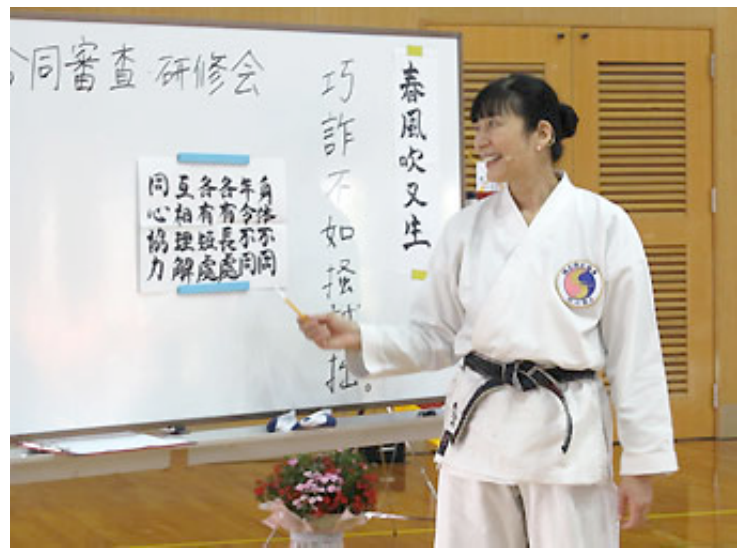 合同審査 研修会
春風吹又生
巧詐不如拙。
身体不同
年令不同
各有長處
各有短處
互相理解
同心協力